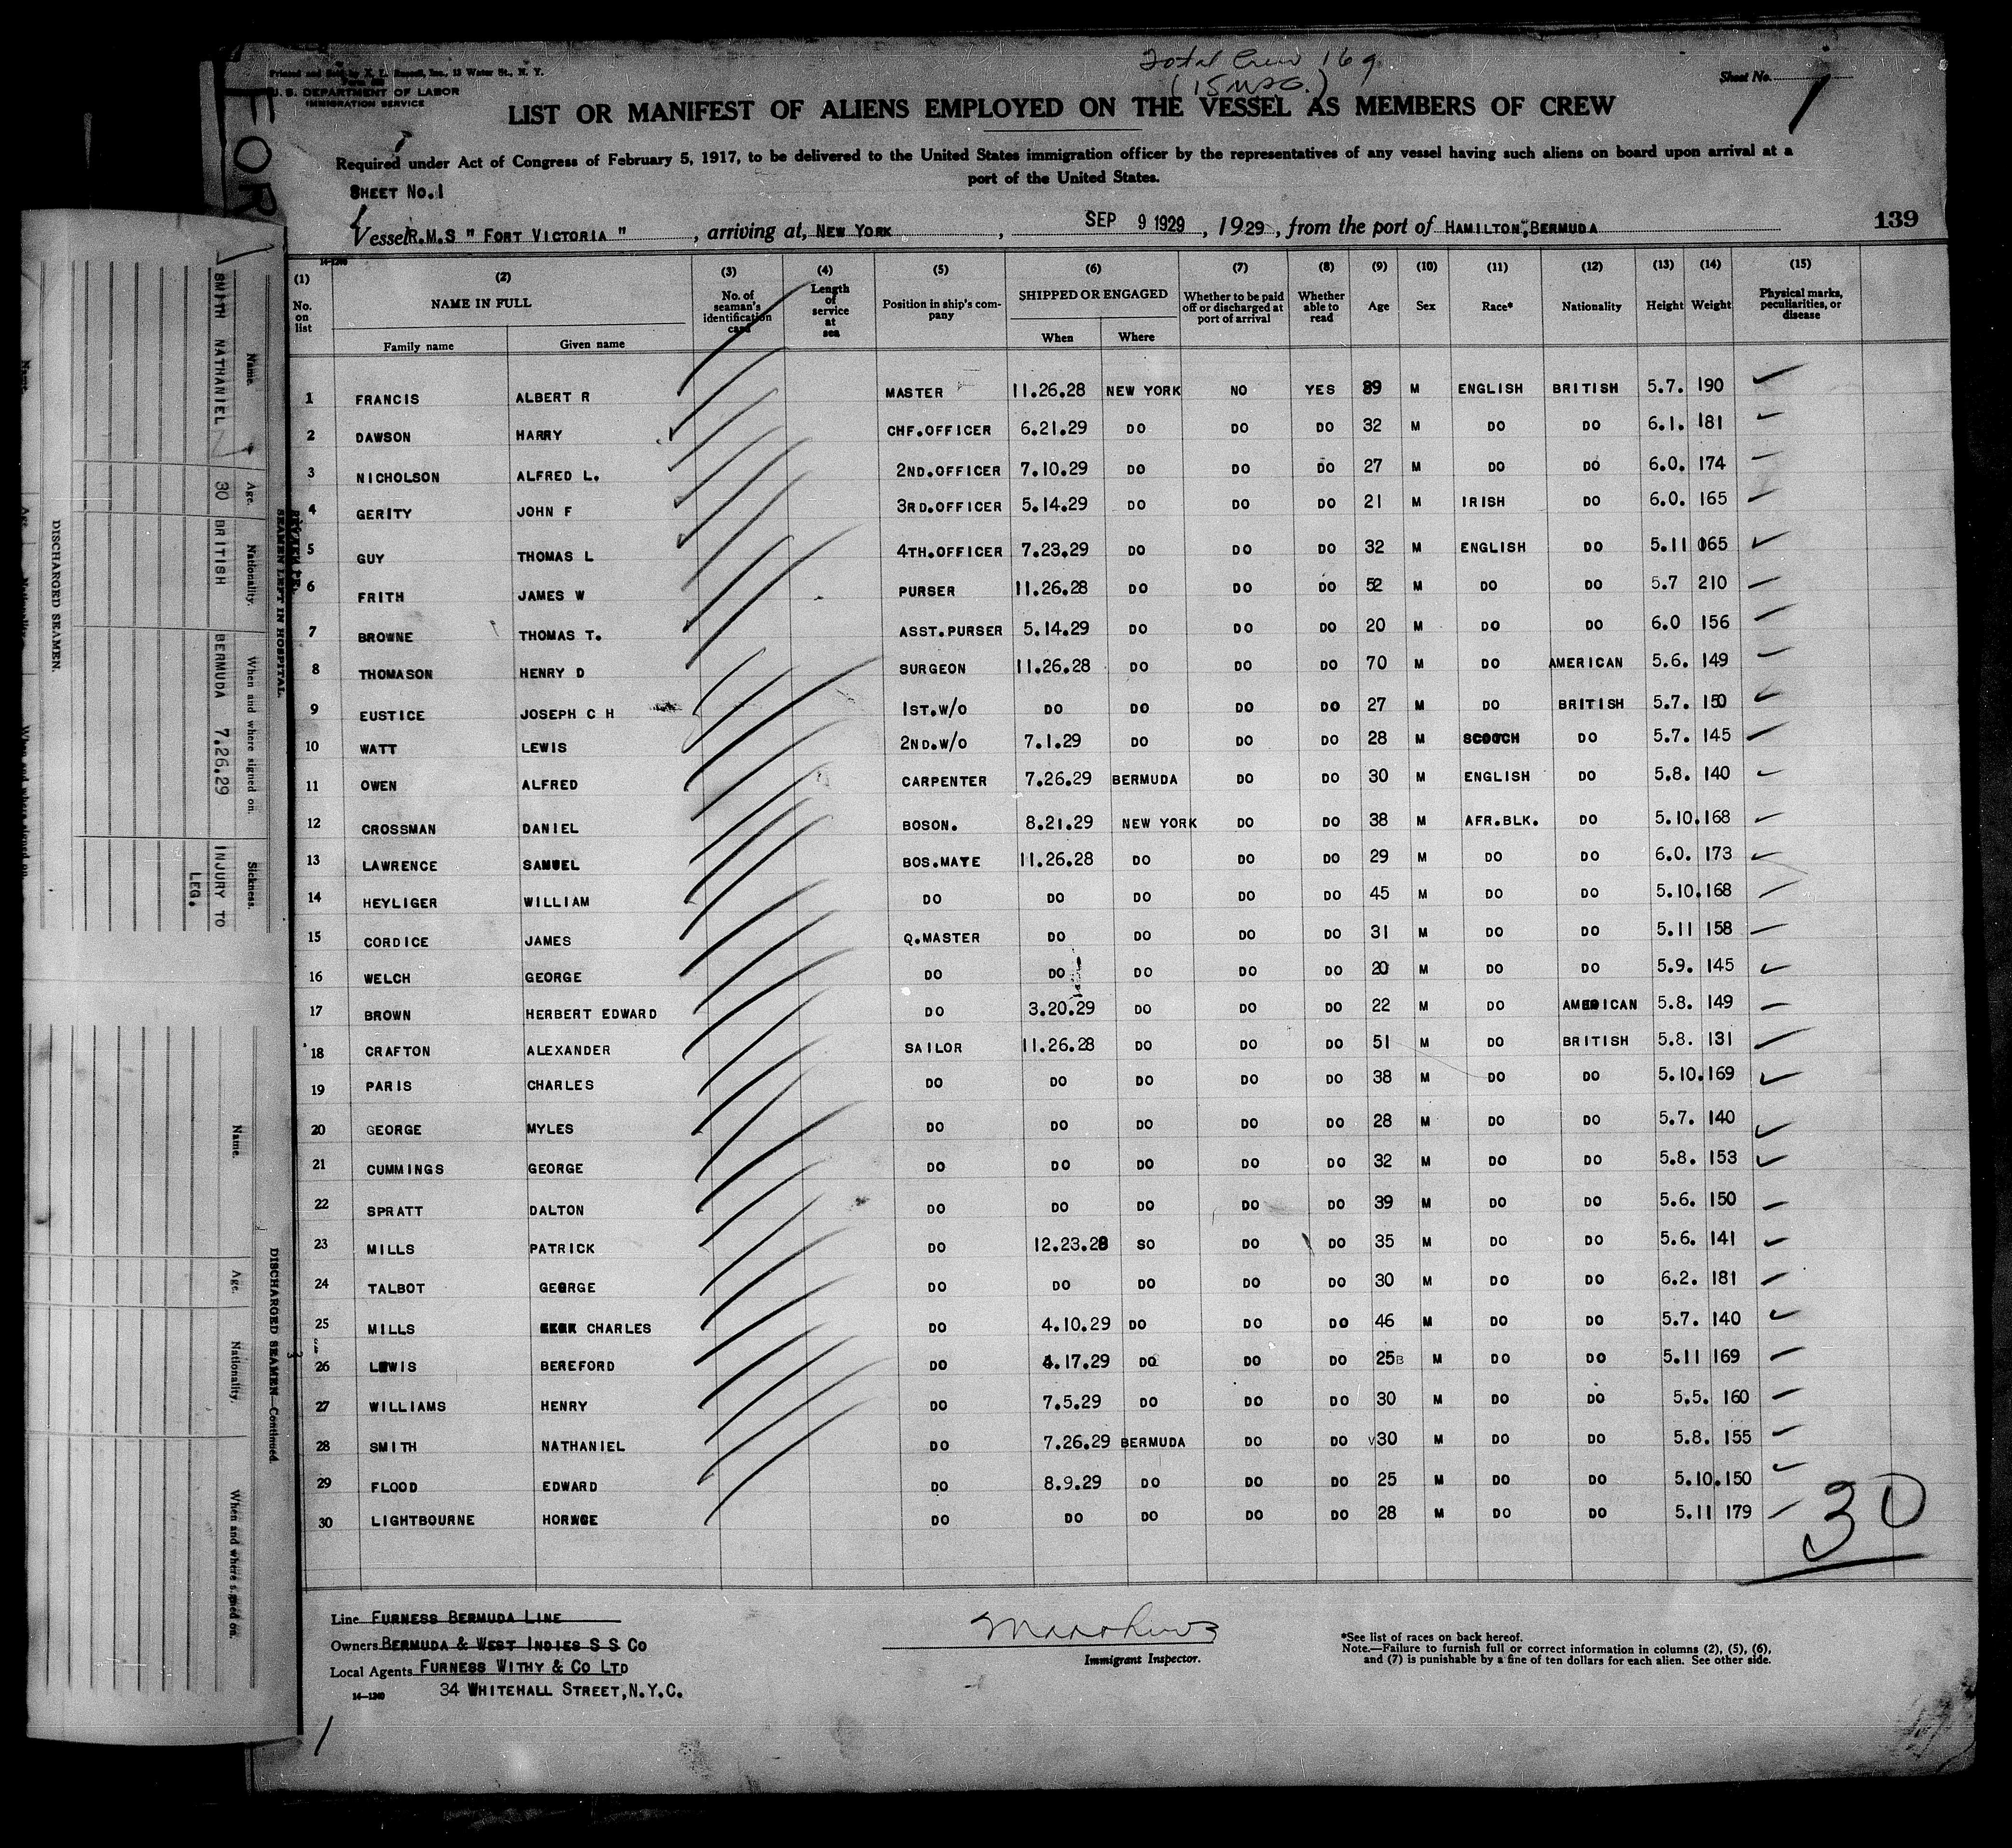 Printed and Sold by K. L. Russell, Inc., 13 Water St., N. Y.
U. S. DEPARTMENT OF LABOR
IMMIGRATION SERVICE
Total Crew 169
Sheet No. 1
LIST OR MANIFEST OF ALIENS EMPLOYED ON THE VESSEL AS MEMBERS OF CREW
Required under Act of Congress of February 5, 1917, to be delivered to the United States immigration officer by the representatives of any vessel having such aliens on board upon arrival at a
port of the United States.
SHEET NO.1
Vessel R.M.S " FORT VICTORIA " , arriving at, NEW YORK , SEP 9 1929 , 1929 , from the port of HAMILTON, BERMUDA
139
14-1240
(1) (2) (3) (4) (5) (6) (7) (8) (9) (10) (11) (12) (13) (14) (15)
No. on list NAME IN FULL Family name Given name No. of seaman's identification card Length of service at sea Position in ship's company SHIPPED OR ENGAGED When Where Whether to be paid off or discharged at port of arrival Whether able to read Age Sex Race* Nationality Height Weight Physical marks, peculiarities, or disease
1 FRANCIS ALBERT R MASTER 11.26.28 NEW YORK NO YES 39 M ENGLISH BRITISH 5.7. 190
2 DAWSON HARRY CHF.OFFICER 6.21.29 DO DO DO 32 M DO DO 6.1. 181
3 NICHOLSON ALFRED L. 2ND.OFFICER 7.10.29 DO DO DO 27 M DO DO 6.0. 174
4 GERITY JOHN F 3RD.OFFICER 5.14.29 DO DO DO 21 M IRISH DO 6.0. 165
5 GUY THOMAS L 4TH.OFFICER 7.23.29 DO DO DO 32 M ENGLISH DO 5.11 065
6 FRITH JAMES W PURSER 11.26.28 DO DO DO 52 M DO DO 5.7 210
7 BROWNE THOMAS T. ASST.PURSER 5.14.29 DO DO DO 20 M DO DO 6.0 156
8 THOMASON HENRY D SURGEON 11.26.28 DO DO DO 70 M DO AMERICAN 5.6. 149
9 EUSTICE JOSEPH C H 1ST.W/O DO DO DO DO 27 M DO BRITISH 5.7. 150
10 WATT LEWIS 2ND.W/O 7.1.29 DO DO DO 28 M SCOTCH DO 5.7. 145
11 OWEN ALFRED CARPENTER 7.26.29 BERMUDA DO DO 30 M ENGLISH DO 5.8. 140
12 CROSSMAN DANIEL BOSON. 8.21.29 NEW YORK DO DO 38 M AFR.BLK. DO 5.10.168
13 LAWRENCE SAMUEL BOS.MATE 11.26.28 DO DO DO 29 M DO DO 6.0. 173
14 HEYLIGER WILLIAM DO DO DO DO DO 45 M DO DO 5.10.168
15 CORDICE JAMES Q.MASTER DO DO DO DO 31 M DO DO 5.11 158
16 WELCH GEORGE DO DO DO DO DO 20 M DO DO 5.9. 145
17 BROWN HERBERT EDWARD DO 3.20.29 DO DO DO 22 M DO AMERICAN 5.8. 149
18 CRAFTON ALEXANDER SAILOR 11.26.28 DO DO DO 51 M DO BRITISH 5.8. 131
19 PARIS CHARLES DO DO DO DO DO 38 M DO DO 5.10.169
20 GEORGE MYLES DO DO DO DO DO 28 M DO DO 5.7. 140
21 CUMMINGS GEORGE DO DO DO DO DO 32 M DO DO 5.8. 153
22 SPRATT DALTON DO DO DO DO DO 39 M DO DO 5.6. 150
23 MILLS PATRICK DO 12.23.28 SO DO DO 35 M DO DO 5.6. 141
24 TALBOT GEORGE DO DO DO DO DO 30 M DO DO 6.2. 181
25 MILLS CHARLES DO 4.10.29 DO DO DO 46 M DO DO 5.7. 140
26 LEWIS BEREFORD DO 4.17.29 DO DO DO 25B M DO DO 5.11 169
27 WILLIAMS HENRY DO 7.5.29 DO DO DO 30 M DO DO 5.5. 160
28 SMITH NATHANIEL DO 7.26.29 BERMUDA DO DO 30 M DO DO 5.8. 155
29 FLOOD EDWARD DO 8.9.29 DO DO DO 25 M DO DO 5.10.150
30 LIGHTBOURNE DO DO DO DO DO 28 M DO DO 5.11 179
30
Line FURNESS BERMUDA LINE
Owners BERMUDA & WEST INDIES S S CO
Local Agents FURNESS WITHY & CO LTD
34 WHITEHALL STREET, N.Y.C.
14-1240
Immigrant Inspector.
*See list of races on back hereof.
Note.—Failure to furnish full or correct information in columns (2), (5), (6),
and (7) is punishable by a fine of ten dollars for each alien. See other side.
FOR
SEAMEN LEFT IN HOSPITAL.
Name. Age. Nationality. When and where signed on. Sickness.
SMITH NATHANIEL 30 BRITISH BERMUDA 7.26.29 INJURY TO
LEG.
DISCHARGED SEAMEN.
DISCHARGED SEAMEN—Continued.
Name. Age. Nationality. When and where signed on.